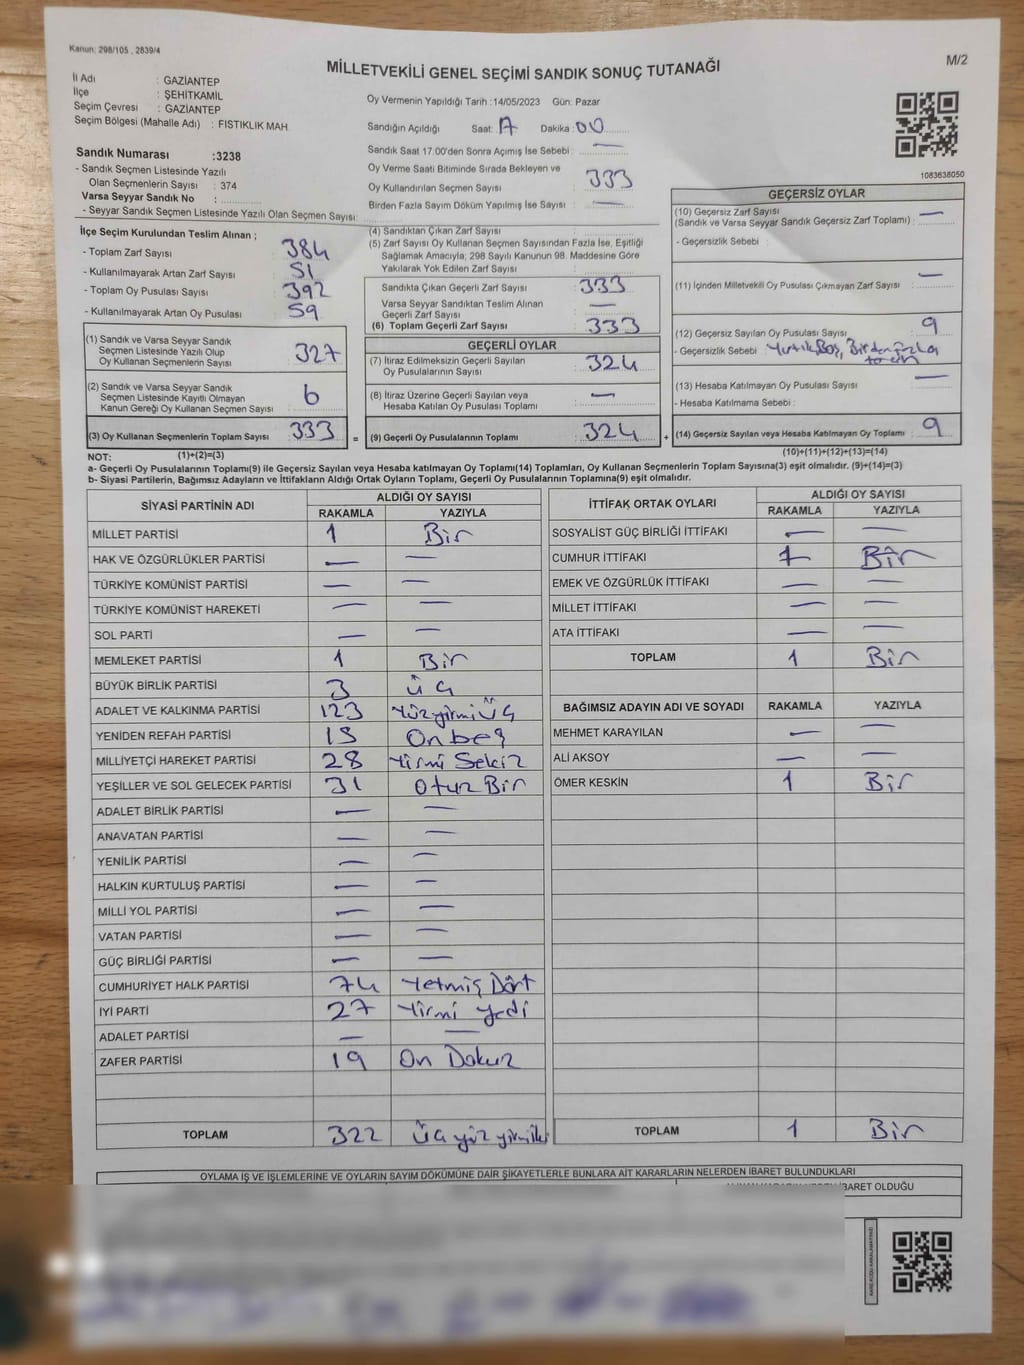 Kanun: 298/105 , 2839/4
M/2
MİLLETVEKİLİ GENEL SEÇİMİ SANDIK SONUÇ TUTANAĞI
İl Adı : GAZİANTEP
İlçe : ŞEHİTKAMİL
Seçim Çevresi : GAZİANTEP
Seçim Bölgesi (Mahalle Adı) : FISTIKLIK MAH.
Sandık Numarası :3238
- Sandık Seçmen Listesinde Yazılı
Olan Seçmenlerin Sayısı : 374
Varsa Seyyar Sandık No :
- Seyyar Sandık Seçmen Listesinde Yazılı Olan Seçmen Sayısı:
Oy Vermenin Yapıldığı Tarih :14/05/2023 Gün: Pazar
Sandığın Açıldığı Saat: 17 Dakika :00
Sandık Saat 17:00'den Sonra Açımış İse Sebebi : —
Oy Verme Saati Bitiminde Sırada Bekleyen ve
Oy Kullandırılan Seçmen Sayısı : 333
Birden Fazla Sayım Döküm Yapılmış İse Sayısı : —
1083638050
İlçe Seçim Kurulundan Teslim Alınan ;
- Toplam Zarf Sayısı : 384
- Kullanılmayarak Artan Zarf Sayısı : 51
- Toplam Oy Pusulası Sayısı : 392
- Kullanılmayarak Artan Oy Pusulası : 59
(1) Sandık ve Varsa Seyyar Sandık
Seçmen Listesinde Yazılı Olup
Oy Kullanan Seçmenlerin Sayısı : 327
(2) Sandık ve Varsa Seyyar Sandık
Seçmen Listesinde Kayıtlı Olmayan
Kanun Gereği Oy Kullanan Seçmen Sayısı : 6
(3) Oy Kullanan Seçmenlerin Toplam Sayısı : 333 =
(4) Sandıktan Çıkan Zarf Sayısı :
(5) Zarf Sayısı Oy Kullanan Seçmen Sayısından Fazla İse, Eşitliği
Sağlamak Amacıyla, 298 Sayılı Kanunun 98. Maddesine Göre
Yakılarak Yok Edilen Zarf Sayısı :
Sandıkta Çıkan Geçerli Zarf Sayısı : 333
Varsa Seyyar Sandıktan Teslim Alınan
Geçerli Zarf Sayısı : —
(6) Toplam Geçerli Zarf Sayısı : 333
GEÇERLİ OYLAR
(7) İtiraz Edilmeksizin Geçerli Sayılan
Oy Pusulalarının Sayısı : 324
(8) İtiraz Üzerine Geçerli Sayılan veya
Hesaba Katılan Oy Pusulası Toplamı : —
(9) Geçerli Oy Pusulalarının Toplamı : 324 +
GEÇERSİZ OYLAR
(10) Geçersiz Zarf Sayısı
(Sandık ve Varsa Seyyar Sandık Geçersiz Zarf Toplamı) : —
- Geçersizlik Sebebi :
(11) İçinden Milletvekili Oy Pusulası Çıkmayan Zarf Sayısı : —
(12) Geçersiz Sayılan Oy Pusulası Sayısı : 9
- Geçersizlik Sebebi : Yırtık, Boş, Birden fazla
(13) Hesaba Katılmayan Oy Pusulası Sayısı : —
- Hesaba Katılmama Sebebi :
(14) Geçersiz Sayılan veya Hesaba Katılmayan Oy Toplamı : 9
NOT: (1)+(2)=(3) (10)+(11)+(12)+(13)=(14)
a- Geçerli Oy Pusulalarının Toplamı(9) ile Geçersiz Sayılan veya Hesaba katılmayan Oy Toplamı(14) Toplamları, Oy Kullanan Seçmenlerin Toplam Sayısına(3) eşit olmalıdır. (9)+(14)=(3)
b- Siyasi Partilerin, Bağımsız Adayların ve İttifakların Aldığı Ortak Oyların Toplamı, Geçerli Oy Pusulalarının Toplamına(9) eşit olmalıdır.
SİYASİ PARTİNİN ADI ALDIĞI OY SAYISI
RAKAMLA YAZIYLA
MİLLET PARTİSİ 1 Bir
HAK VE ÖZGÜRLÜKLER PARTİSİ — —
TÜRKİYE KOMÜNİST PARTİSİ — —
TÜRKİYE KOMÜNİST HAREKETİ — —
SOL PARTİ — —
MEMLEKET PARTİSİ 1 Bir
BÜYÜK BİRLİK PARTİSİ 3 üç
ADALET VE KALKINMA PARTİSİ 123 Yüzyirmi üç
YENİDEN REFAH PARTİSİ 15 On beş
MİLLİYETÇİ HAREKET PARTİSİ 28 Yirmi Sekiz
YEŞİLLER VE SOL GELECEK PARTİSİ 31 Otuz Bir
ADALET BİRLİK PARTİSİ — —
ANAVATAN PARTİSİ — —
YENİLİK PARTİSİ — —
HALKIN KURTULUŞ PARTİSİ — —
MİLLİ YOL PARTİSİ — —
VATAN PARTİSİ — —
GÜÇ BİRLİĞİ PARTİSİ — —
CUMHURİYET HALK PARTİSİ 74 Yetmiş Dört
İYİ PARTİ 27 Yirmi Yedi
ADALET PARTİSİ — —
ZAFER PARTİSİ 19 On Dokuz
TOPLAM 322 Üç yüz yirmi iki
İTTİFAK ORTAK OYLARI ALDIĞI OY SAYISI
RAKAMLA YAZIYLA
SOSYALİST GÜÇ BİRLİĞİ İTTİFAKI — —
CUMHUR İTTİFAKI 1 Bir
EMEK VE ÖZGÜRLÜK İTTİFAKI — —
MİLLET İTTİFAKI — —
ATA İTTİFAKI — —
TOPLAM 1 Bir
BAĞIMSIZ ADAYIN ADI VE SOYADI RAKAMLA YAZIYLA
MEHMET KARAYILAN — —
ALİ AKSOY — —
ÖMER KESKİN 1 Bir
TOPLAM 1 Bir
OYLAMA İŞ VE İŞLEMLERİNE VE OYLARIN SAYIM DÖKÜMÜNE DAİR ŞİKAYETLERLE BUNLARA AİT KARARLARIN NELERDEN İBARET BULUNDUKLARI
İBARET OLDUĞU